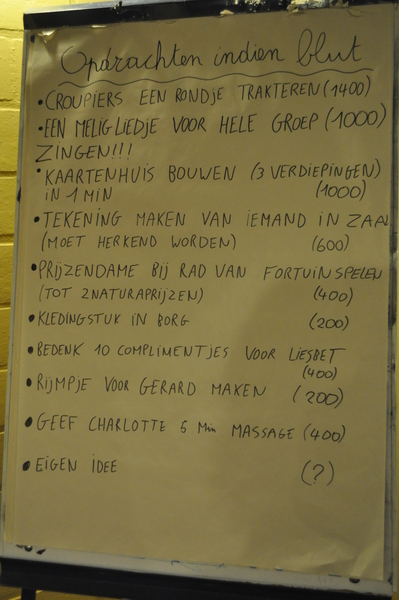 Opdrachten indien blut
• CROUPIERS EEN RONDJE TRAKTEREN (1400)
• EEN MELIG LIEDJE VOOR HELE GROEP (1000)
ZINGEN!!!
• KAARTENHUIS BOUWEN (3 VERDIEPINGEN)
IN 1 MIN (1000)
• TEKENING MAKEN VAN IEMAND IN ZAAL
(MOET HERKEND WORDEN) (600)
• PRIJZENDAME BIJ RAD VAN FORTUIN SPELEN
(TOT 2 NATURAPRIJZEN) (400)
• KLEDINGSTUK IN BORG (200)
• BEDENK 10 COMPLIMENTJES VOOR LIESBET
(400)
• RIJMPJE VOOR GERARD MAKEN (200)
• GEEF CHARLOTTE 5 Min MASSAGE (400)
• EIGEN IDEE (?)